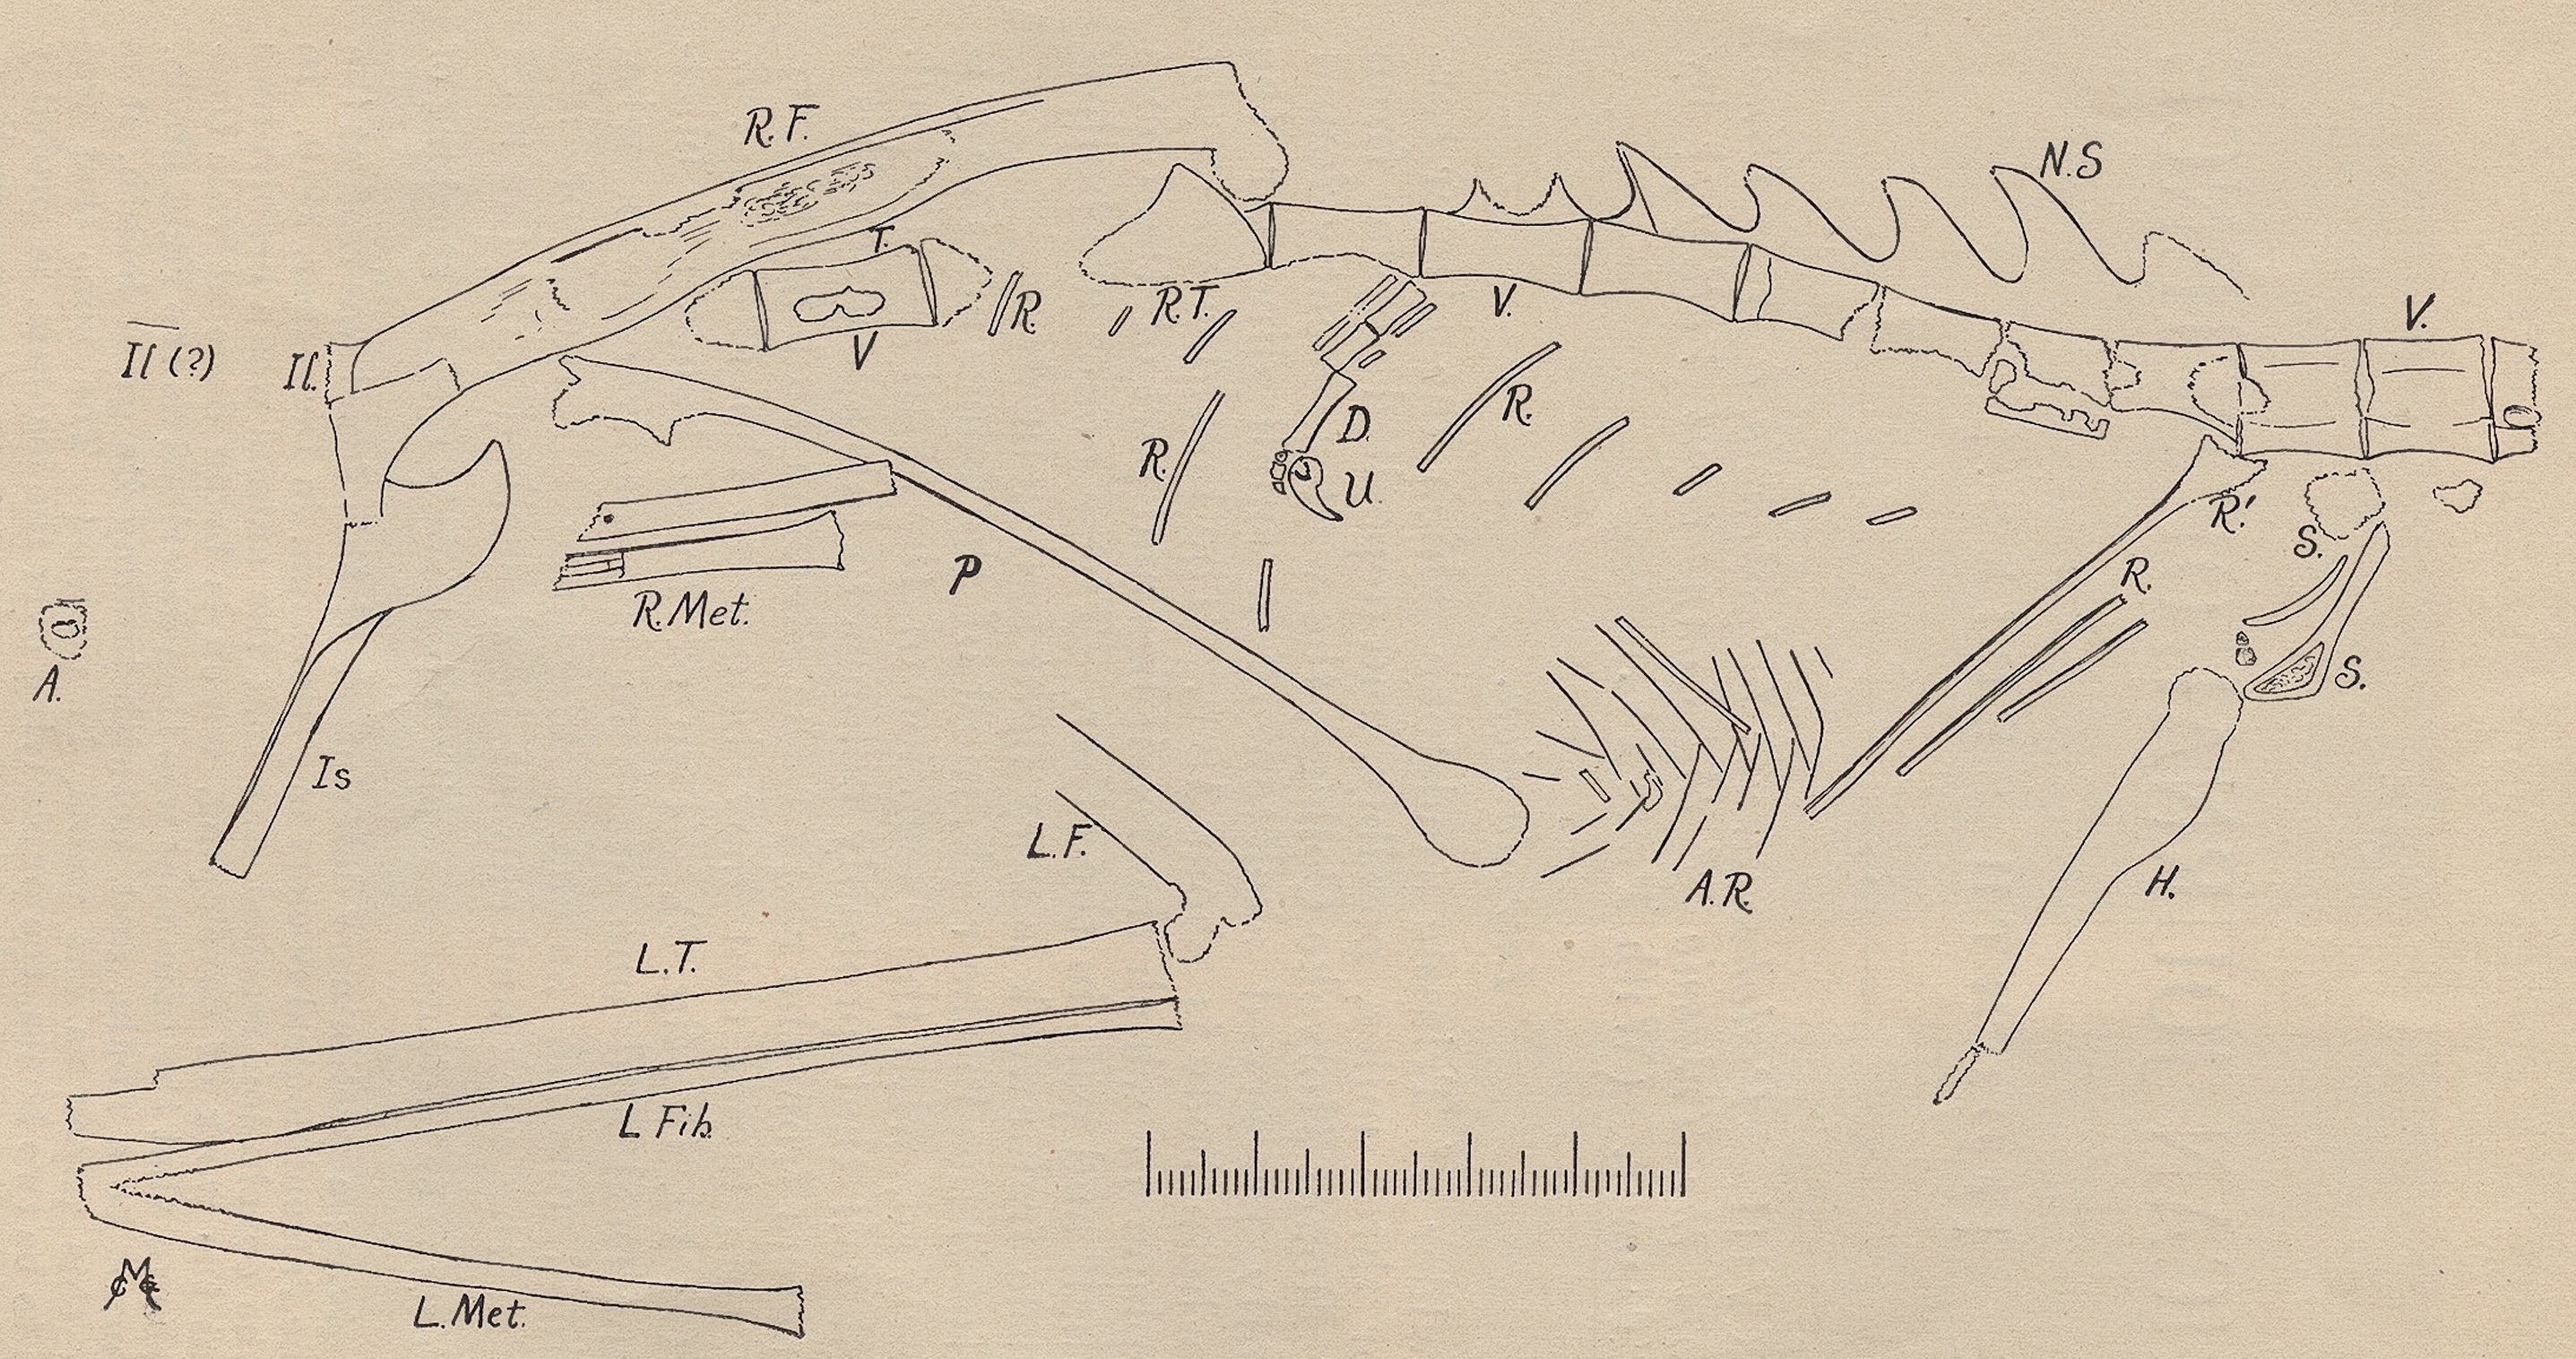 R.F.
N.S
T.
R
R.T.
V.
V.
Il (?)
Il.
V
R.
D.
R.
U.
R!
S.
P
R.
R.Met.
A.
S.
Is
L.F.
A.R.
H.
L.T.
L Fib.
L.Met.